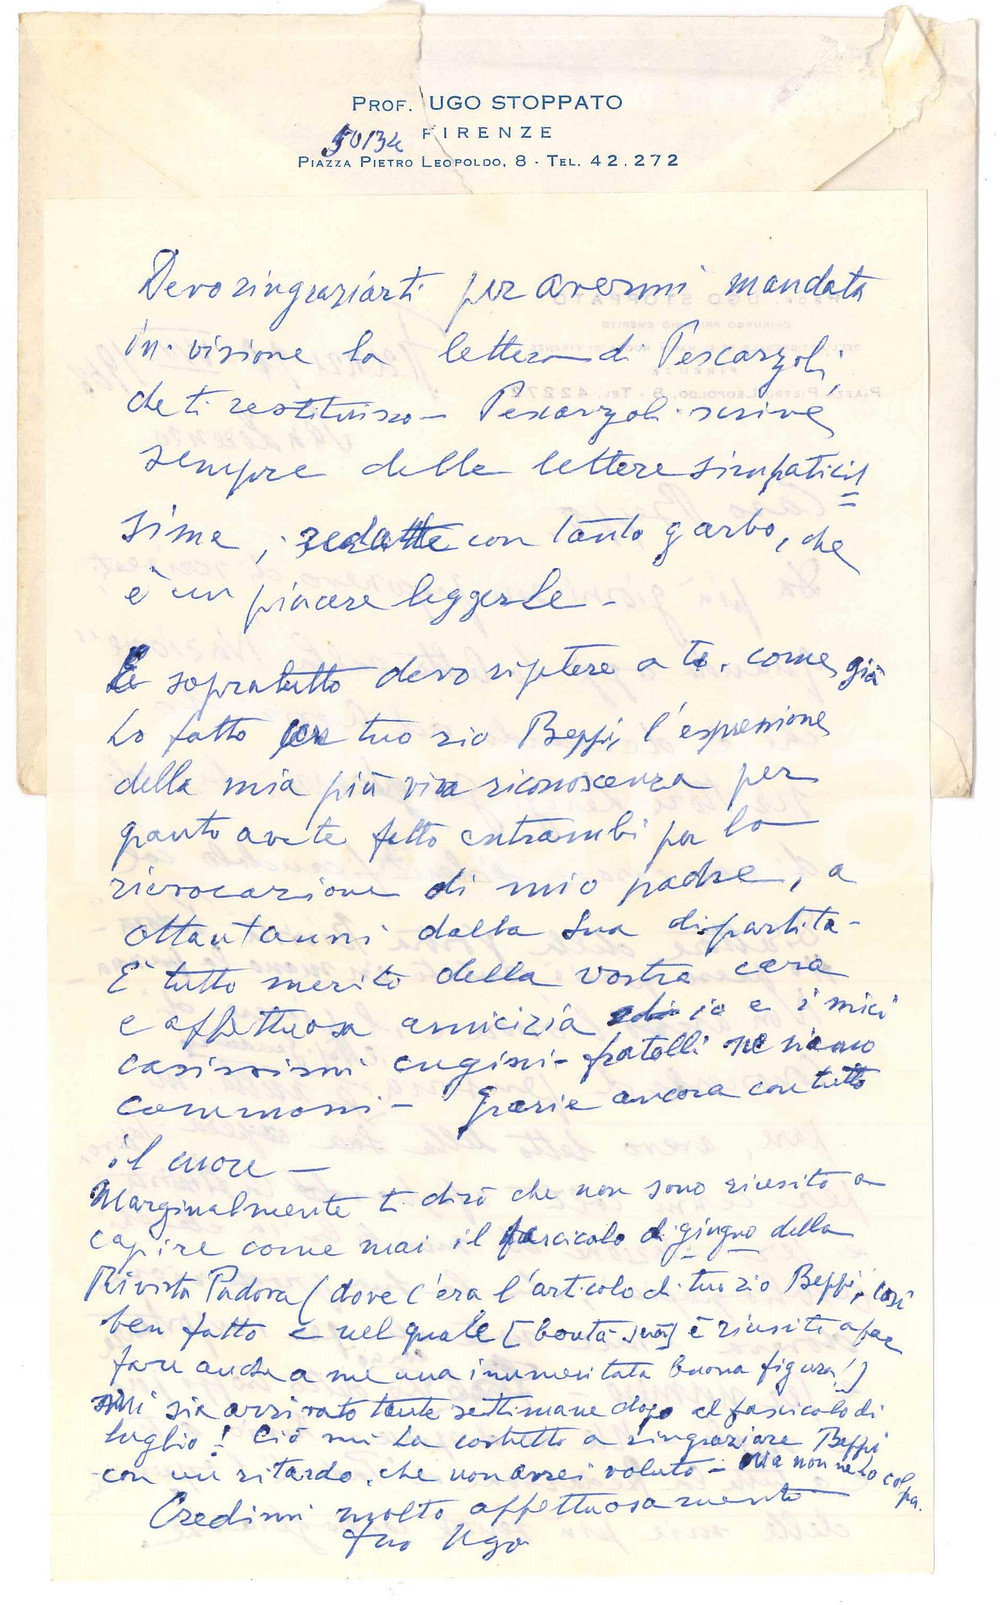 PROF. UGO STOPPATO
50134 FIRENZE
PIAZZA PIETRO LEOPOLDO, 8 - TEL. 42.272
Devo ringraziarti per avermi mandata
in visione la lettera di Pescarzoli,
che ti restituisco - Pescarzoli scrive
sempre delle lettere simpaticis=
sime, redatte con tanto garbo, che
è un piacere leggerle -
E sopratutto devo ripetere a te, come già
ho fatto con tuo zio Beppi, l'espressione
della mia più viva riconoscenza per
quanto avete fatto entrambi per la
rievocazione di mio padre, a
ottant'anni dalla Sua dispartita -
È tutto merito della vostra cara
e affettuosa amicizia io e i miei
carissimi cugini-fratelli ne siamo
commossi - Grazie ancora con tutto
il cuore -
Marginalmente ti dirò che non sono riuscito a
capire come mai il fascicolo di giugno della
Rivista Padova (dove c'era l'articolo di tuo zio Beppi, così
ben fatto e nel quale [bontà sua] è riuscito a far
fare anche a me una immeritata buona figura!)
mi sia arrivato tante settimane dopo il fascicolo di
luglio! Ciò mi ha costretto a ringraziare Beppi
con un ritardo, che non avrei voluto - Ma non ne ho colpa.
Credimi molto affettuosamente
tuo Ugo